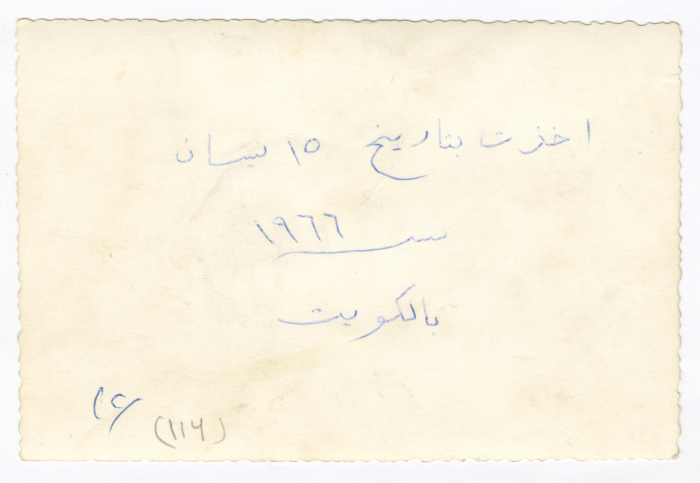 اخذت بتاريخ ١٥ نيسان
سنة ١٩٦٦
بالكويت
(١١٦)